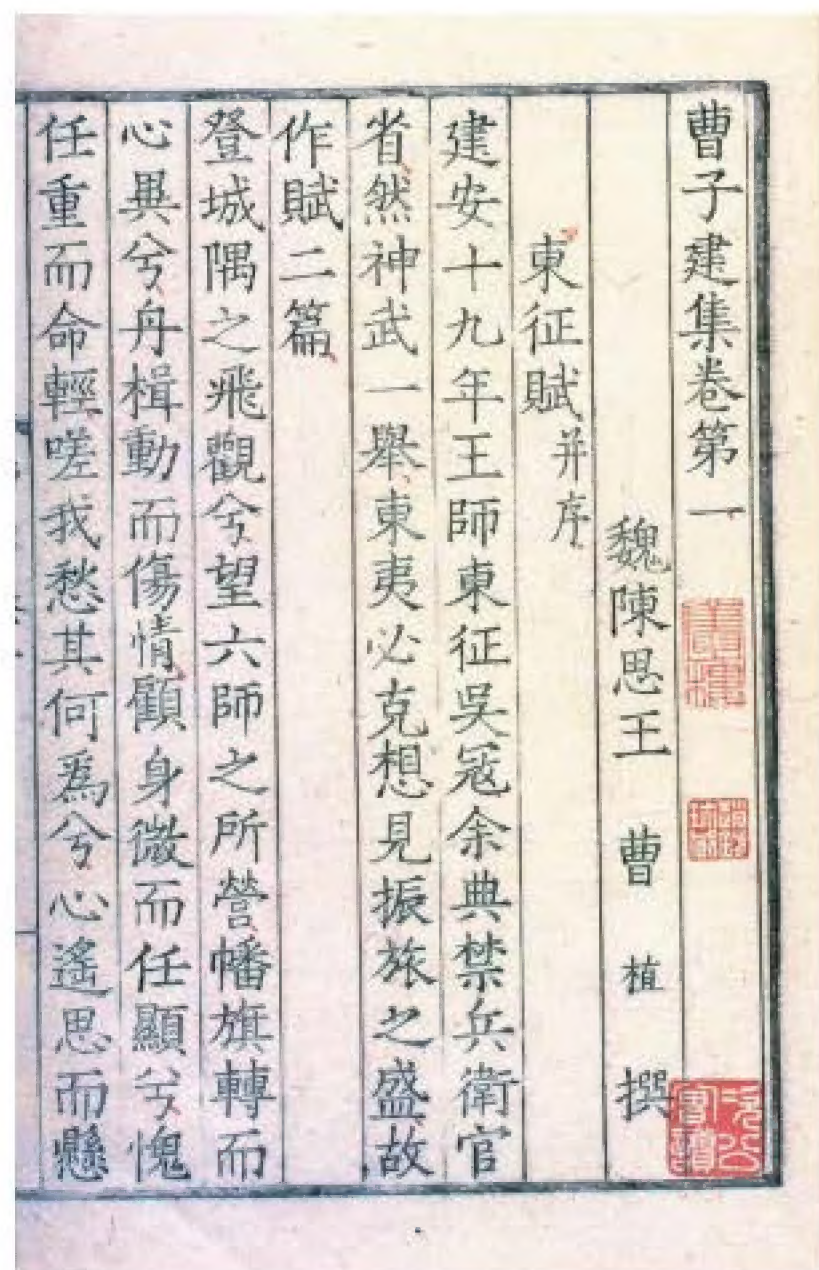 曹子建集卷第一
魏陳思王 曹 植 撰
東征賦并序
建安十九年王師東征吳冦余典禁兵衛官
省然神武一舉東夷必克想見振旅之盛故
作賦二篇
登城隅之飛觀兮望六師之所營幡旗轉而
心異兮舟楫動而傷情顧身微而任顯兮愧
任重而命輕嗟我愁其何爲兮心遙思而懸